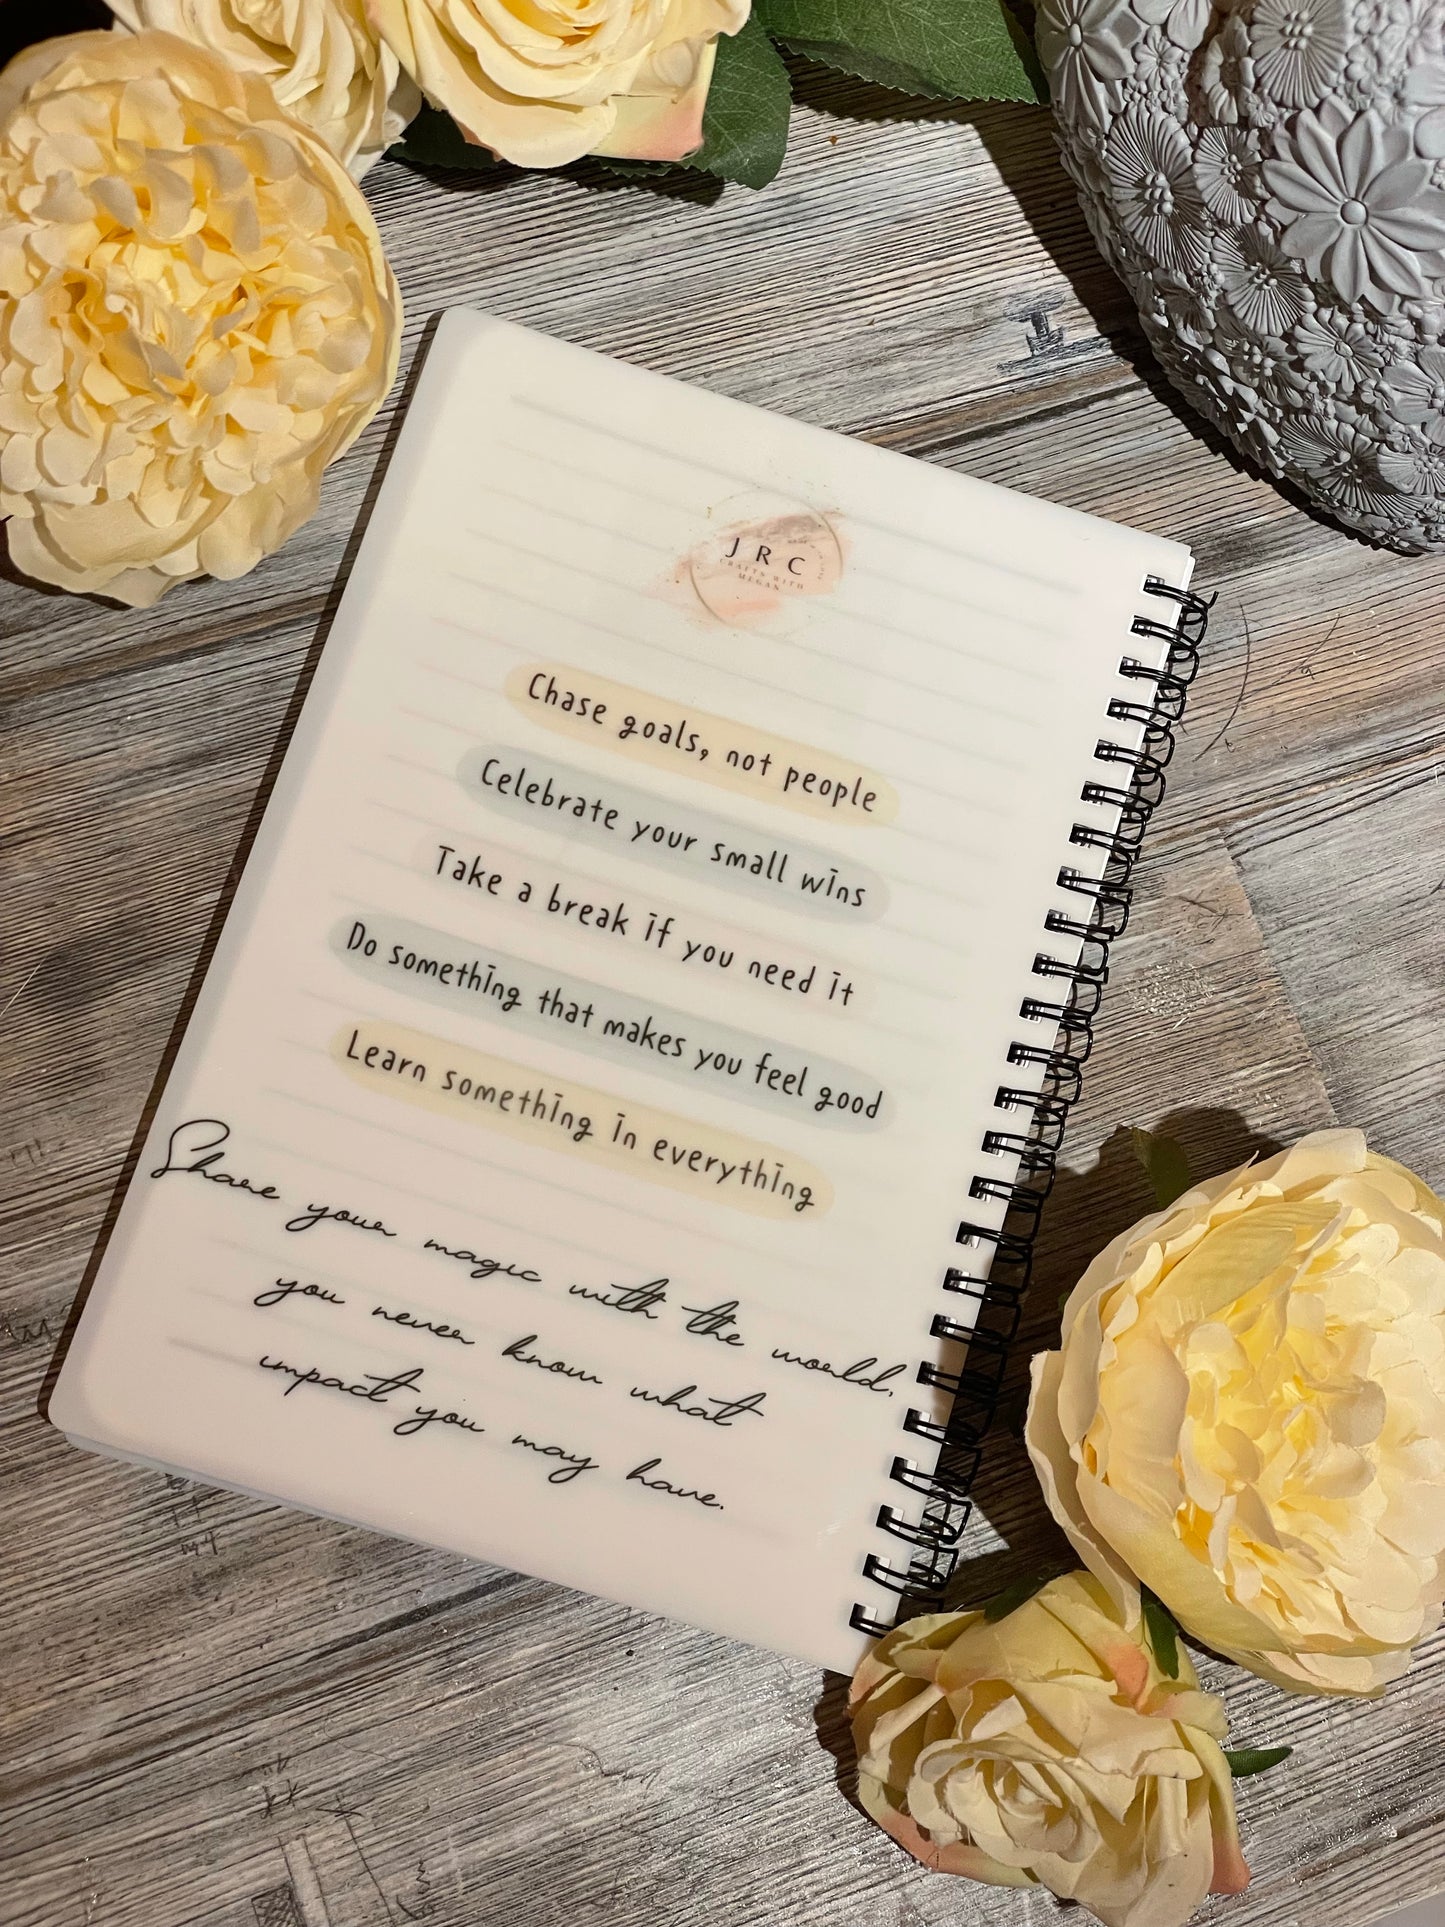 J R C
CRAFTS WITH
MEGAN
Chase goals, not people
Celebrate your small wins
Take a break if you need it
Do something that makes you feel good
Learn something in everything
Share your magic with the world,
you never know what
impact you may have.